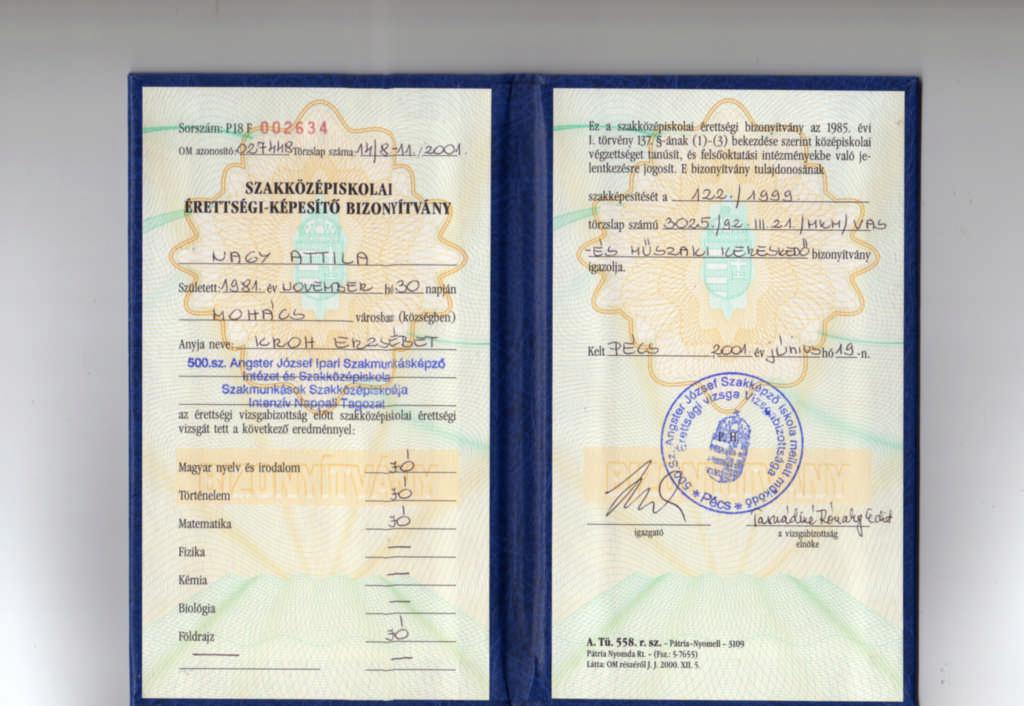 Sorszám: P18 F 002634
OM azonosító: 027448 Törzslap száma: 14/8-11./2001.
SZAKKÖZÉPISKOLAI
ÉRETTSÉGI-KÉPESÍTŐ BIZONYÍTVÁNY
NAGY ATTILA
Született: 1981. év NOVEMBER hó 30 napján
MOHÁCS városban (községben)
Anyja neve: KROH ERZSÉBET
500.sz. Angster József Ipari Szakmunkásképző
Intézet és Szakközépiskola
Szakmunkások Szakközépiskolája
Intenzív Nappali Tagozat
az érettségi vizsgabizottság előtt szakközépiskolai érettségi
vizsgát tett a következő eredménnyel:
Magyar nyelv és irodalom JÓ
Történelem JÓ
Matematika JÓ
Fizika —
Kémia —
Biológia —
Földrajz JÓ
— —
BIZONYÍTVÁNY
Ez a szakközépiskolai érettségi bizonyítvány az 1985. évi
I. törvény 137. §-ának (1)-(3) bekezdése szerint középiskolai
végzettséget tanúsít, és felsőoktatási intézményekbe való je-
lentkezésre jogosít. E bizonyítvány tulajdonosának
szakképesítését a 122./1999.
törzslap számú 3025/92.III.21/MKM/VAS
-ÉS MŰSZAKI KERESKEDŐ bizonyítvány
igazolja.
Kelt PÉCS 2001. év június hó 19.-n.
500. Sz. Angster József Szakképző Iskola mellett működő
Érettségi vizsga Vizsgabizottsága
* Pécs *
P. H.
BIZONYÍTVÁNY
igazgató
a vizsgabizottság
elnöke
A. Tü. 558. r. sz. - Pátria-Nyomell – 3109
Pátria Nyomda Rt. – (Fsz.: 5-7655)
Látta: OM részéről J. J. 2000. XII. 5.